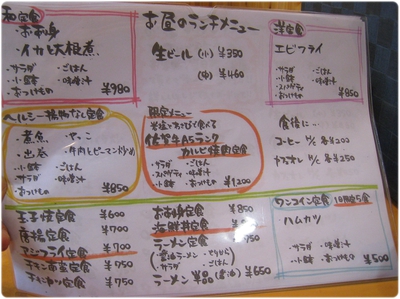 お昼のランチメニュー
和定食
お刺身
イカと大根煮
・サラダ ・ごはん
・小鉢 ・味噌汁
・おつけもの
¥980
生ビール (小) ¥350
(中) ¥460
洋定食
エビフライ
・サラダ ・ごはん
・小鉢 ・味噌汁
・スパゲティ
・おつけもの
¥850
ヘルシー 揚物なし定食
煮魚 ・やっこ
・牛肉とピーマン炒め
・小鉢 ・ごはん
・サラダ ・味噌汁
・おつけもの
¥850
限定メニュー
佐賀牛A5ランク
カルビ焼肉定食
・サラダ ・ごはん
・スパゲティ ・味噌汁
・小鉢 ・おつけもの
¥1,200
食後に…
コーヒー H/C 各¥200
カフェオレ H/C 各¥250
玉子焼定食 ¥600
唐揚定食 ¥700
アジフライ定食 ¥700
チキン南蛮定食 ¥750
チキンカツ定食 ¥750
お刺身定食 ¥850
海鮮丼定食
ラーメン定食 ¥950
・サラダ ・ごはん
ラーメン 単品 (醤油) ¥650
ワンコイン定食 10食限定
ハムカツ
・サラダ ・ごはん
・小鉢 ・味噌汁
・おつけもの
¥500